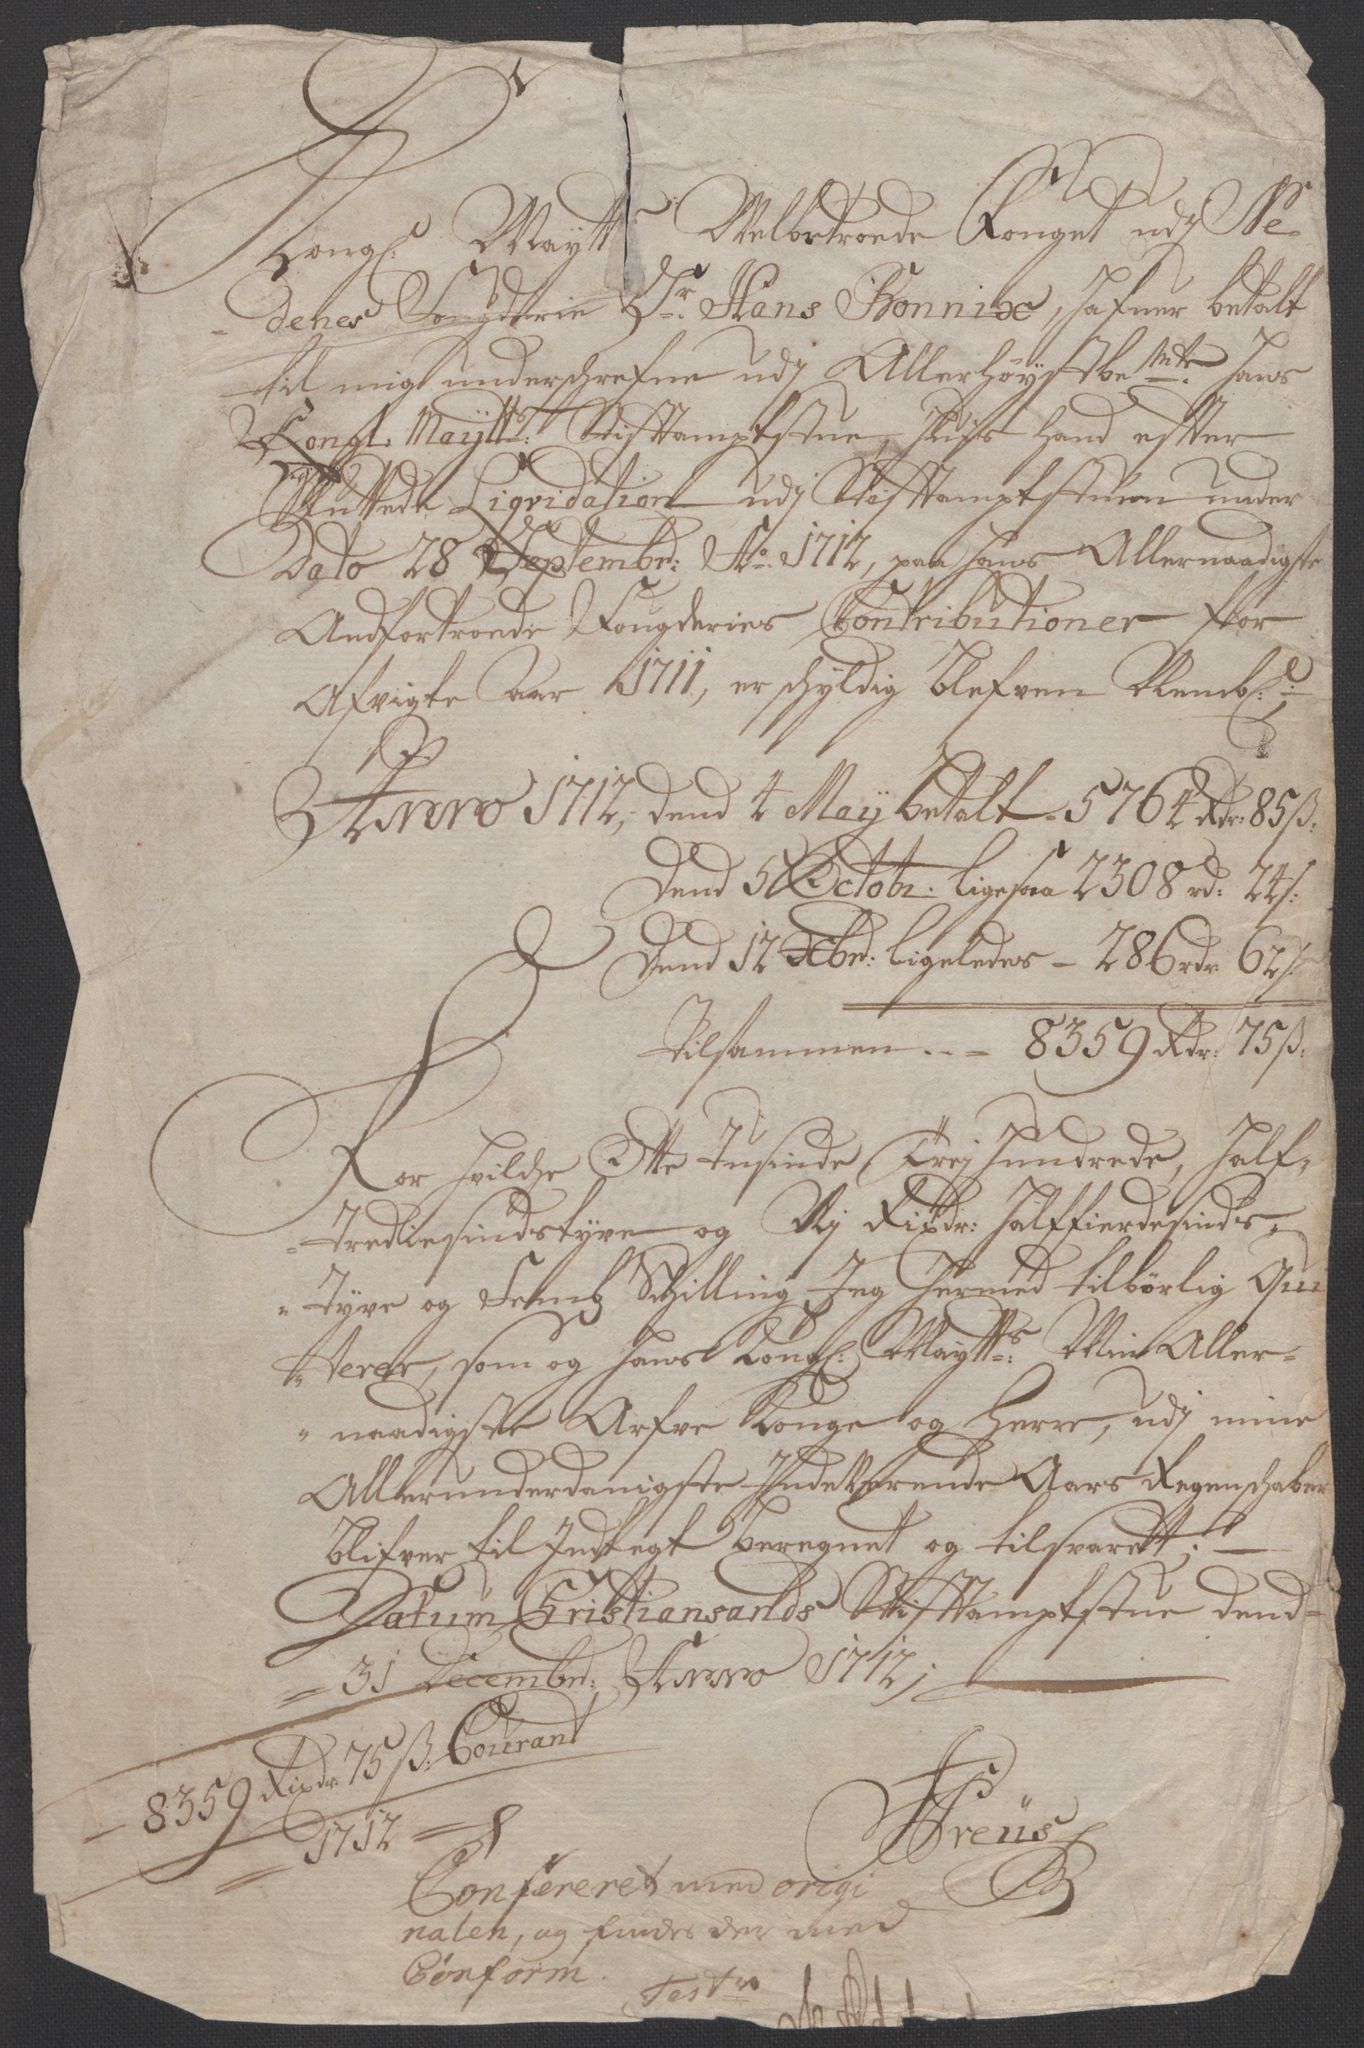 Kongl: Maytts Welbetroede Fouget udj Ne-
denes Fougderie Sr: Hans Bonnix, hafuer betalt
til mig underschrefne udj Allerhöystbemte: Hans
Kongl. Maÿtts: Stifftampts tue, hvis hand effter
sluttede Liqvidation udj Stifftamptstuen under
Dato 28 Septembr: Ao: 1712, paa hans Allernaadigste
Andfortroede Fougderies Contributioner for
Afvigte aar 1711, er schyldig blefven Nembl:
Anno 1712, dend 4 Maÿ betalt - 5764 Rdr: 85 ß:
Dend 5 Octobr: ligesaa 2308 rd: 24 ß:
Dend 12 Xbr: ligeledes - 286 rdr 62 ß:
Tilsammen - - 8359 Rdr: 75 ß:
For hvilche Otte Tusinde Trej Hundrede, half-
-trediesindstyve og Nj Rixdr: halffierdesinds-
-tyve og Femb Schilling Jeg hermed tilbörlig Qui
-terer, som og hans Kongl: Maytts: Min Aller-
-naadigste Arfve Konge og Herre, udj mine
Allerunderdanigste Indeverende Aars Regenschaber
blifver til Indtegt beregnet og tilsvaret;
Datum Christiansands Stifftamptstue dend
31 Decembr: Anno 1712;
8359 Rixdr: 75 ß: Courant
1712
Treüs
Confereret med origi
nalen, og findes der med
Conform.
Test